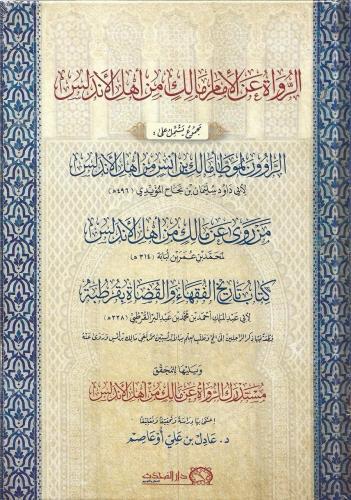 الرواة عن الإمام مالك من أهل الأندلس
مجموع يشتمل على:
الراوون لموطأ مالك بن أنس من أهل الأندلس
لأبي داود سليمان بن نجاح المؤيدي (٤٩٦هـ)
من روى عن مالك من أهل الأندلس
لمحمد بن عمر بن لبابة (٣١٤هـ)
كتاب تاريخ الفقهاء والقضاة بقرطبة
لأبي عبد الملك أحمد بن محمد بن عبد البر القرطبي (٣٣٨هـ)
ويليها للمحقق
مستدرك الرواة عن مالك من أهل الأندلس
اعتنى بها دراسة وتحقيقا وتعليقا
د. عادل بن علي أوعاصم
دار المحدث